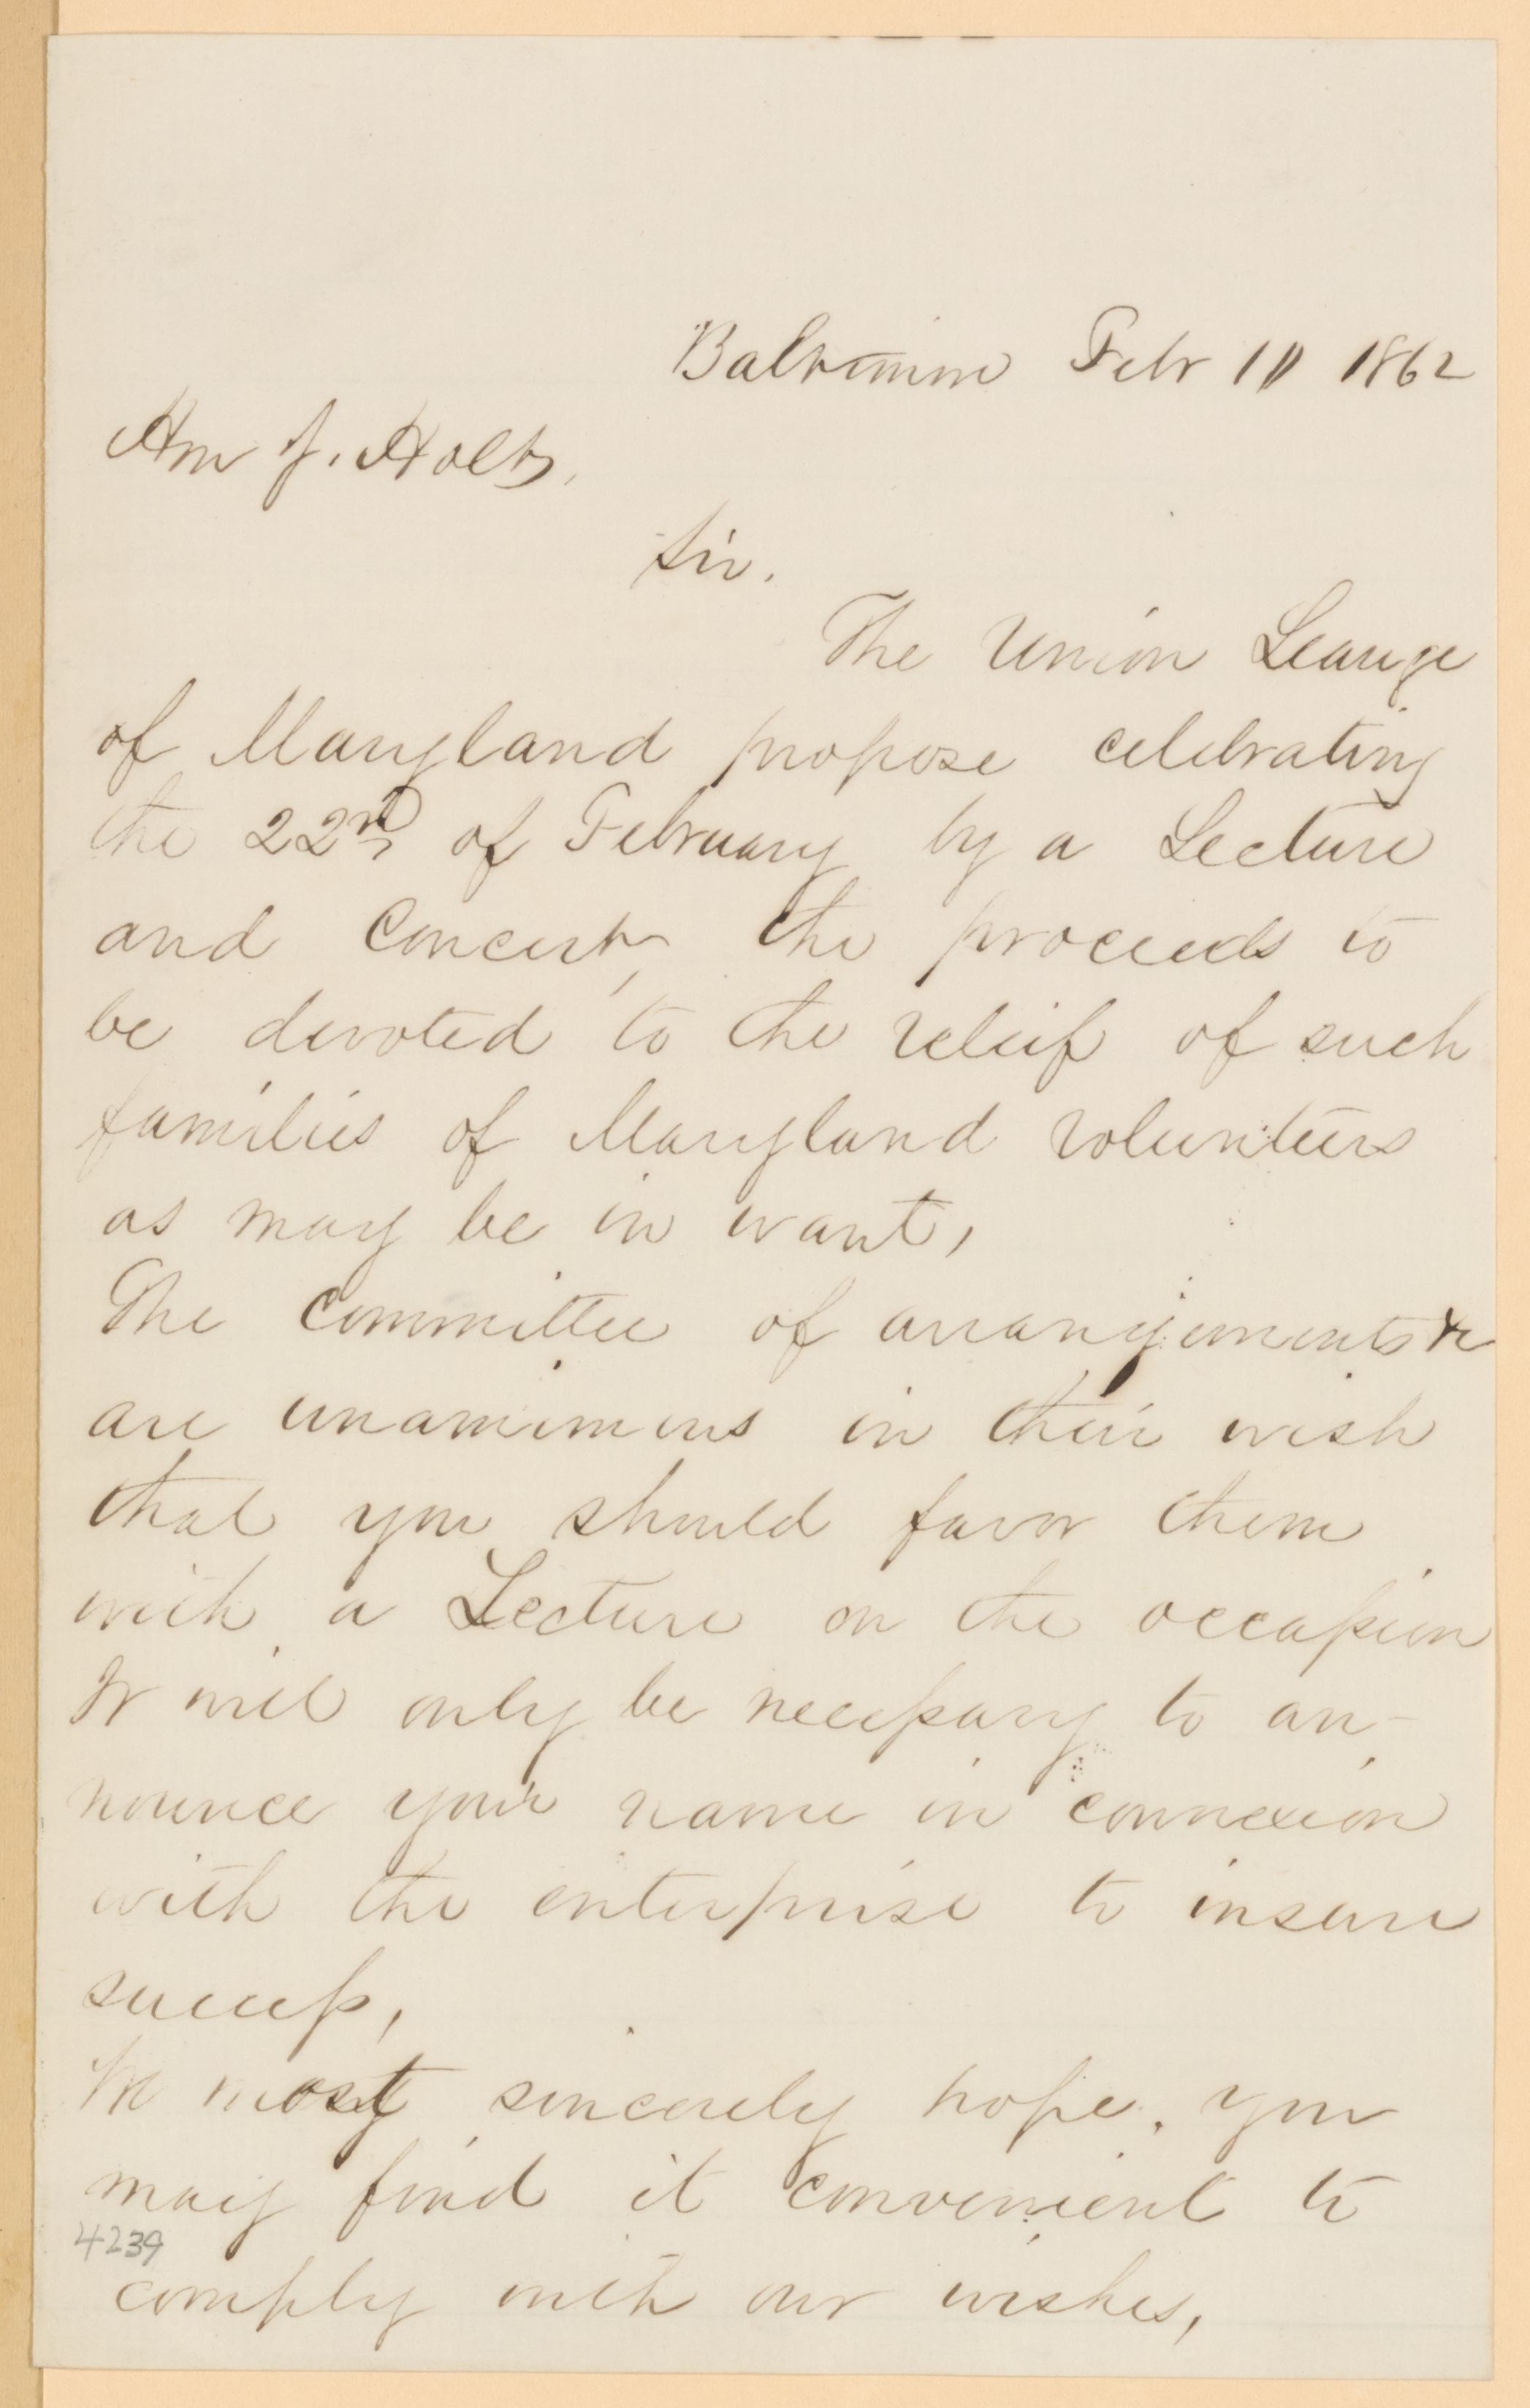 Baltimore Febr 10 1862
Hon J. Holt,
Sir.
The Union Leauge
of Maryland propose celebrating
the 22nd of February by a Lecture
and Concert, the proceeds to
be devoted to the releif of such
families of Maryland volunteers
as may be in want,
The Committee of arrangements &c
are unanimous in their wish
that you should favor them
with a Lecture on the occassion
It will only be necessary to an-
nounce your name in connexion
with the enterprise to insure
success,
We most sincerely hope, you
may find it convenient to
4239
comply with our wishes,